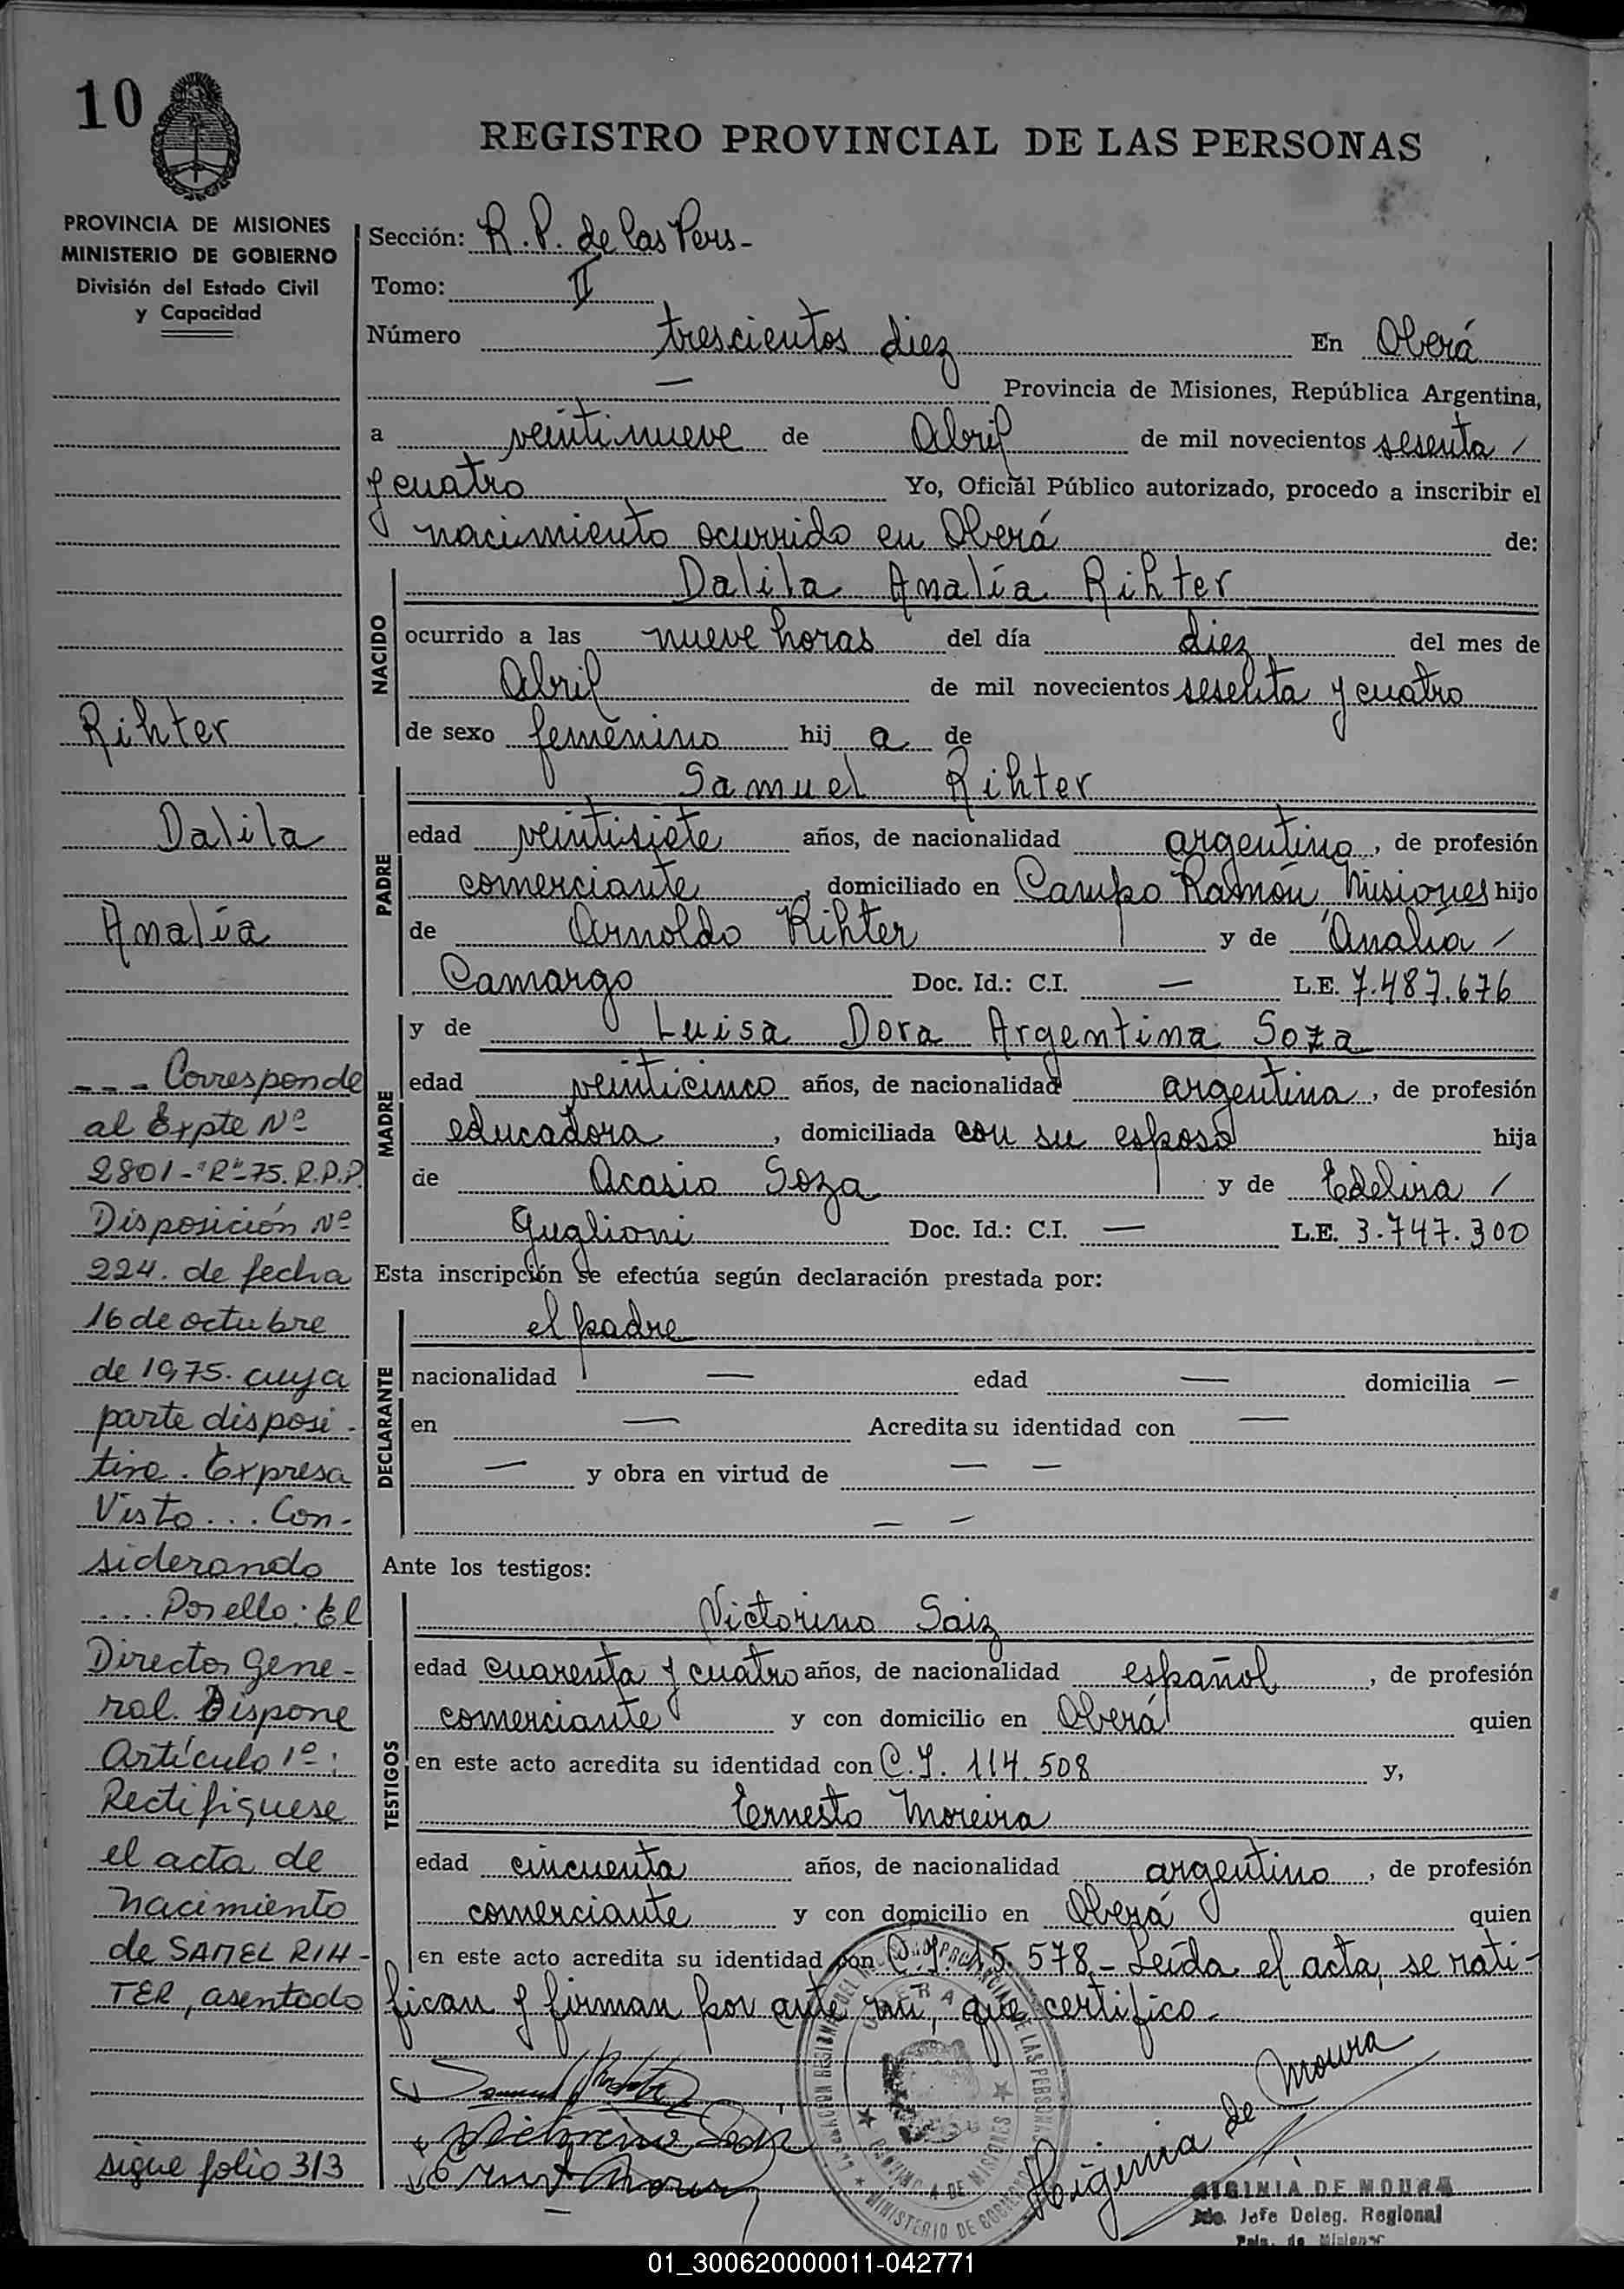 10
REGISTRO PROVINCIAL DE LAS PERSONAS
PROVINCIA DE MISIONES
MINISTERIO DE GOBIERNO
División del Estado Civil
y Capacidad
Sección: R.P. de las Pers-
Tomo: II
Número trescientos diez En Oberá
— Provincia de Misiones, República Argentina,
a veintinueve de Abril de mil novecientos sesenta /
y cuatro Yo, Oficial Público autorizado, procedo a inscribir el
nacimiento ocurrido en Oberá de:
NACIDO
Dalila Analía Rihter
ocurrido a las nueve horas del día diez del mes de
Abril de mil novecientos sesenta y cuatro
de sexo femenino hij a de
PADRE
Samuel Rihter
edad veintisiete años, de nacionalidad argentino, de profesión
comerciante, domiciliado en Campo Ramón, Misiones hijo
de Arnoldo Rihter y de Analia /
Camargo Doc. Id.: C.I. — L.E. 7.487.676
MADRE
y de Luisa Dora Argentina Soza
edad veinticinco años, de nacionalidad argentina, de profesión
educadora, domiciliada con su esposo hija
de Acasio Soza y de Edelira /
Guglioni Doc. Id.: C.I. — L.E. 3.747.300
Esta inscripción se efectúa según declaración prestada por:
DECLARANTE
el padre
nacionalidad — edad — domicilia —
en — Acredita su identidad con —
— y obra en virtud de — —
— —
Ante los testigos:
TESTIGOS
Victorino Saiz
edad cuarenta y cuatro años, de nacionalidad español, de profesión
comerciante y con domicilio en Oberá quien
en este acto acredita su identidad con C.I. 114.508 y,
Ernesto Moreira
edad cincuenta años, de nacionalidad argentino, de profesión
comerciante y con domicilio en Oberá quien
en este acto acredita su identidad con C.I. 15.578.- Leída el acta, se rati-
fican y firman por ante mí, que certifico.-
Higinia de Moura
HIGINIA DE MOURA
Jefe Deleg. Regional
Rihter
Dalila
Analía
--- Corresponde
al Expte Nº
2801-"R"-75. R.P.P.
Disposición Nº
224. de fecha
16 de octubre
de 1975. cuya
parte disposi-
tiva. Expresa
Visto... Con-
siderando
... Por ello: El
Director Gene-
ral. Dispone
Artículo 1º:
Rectifiquese
el acta de
nacimiento
de SAMEL RIH-
TER, asentado
sigue folio 313
OBERA
PROVINCIA DE MISIONES
MINISTERIO DE GOBIERNO
01_300620000011-042771